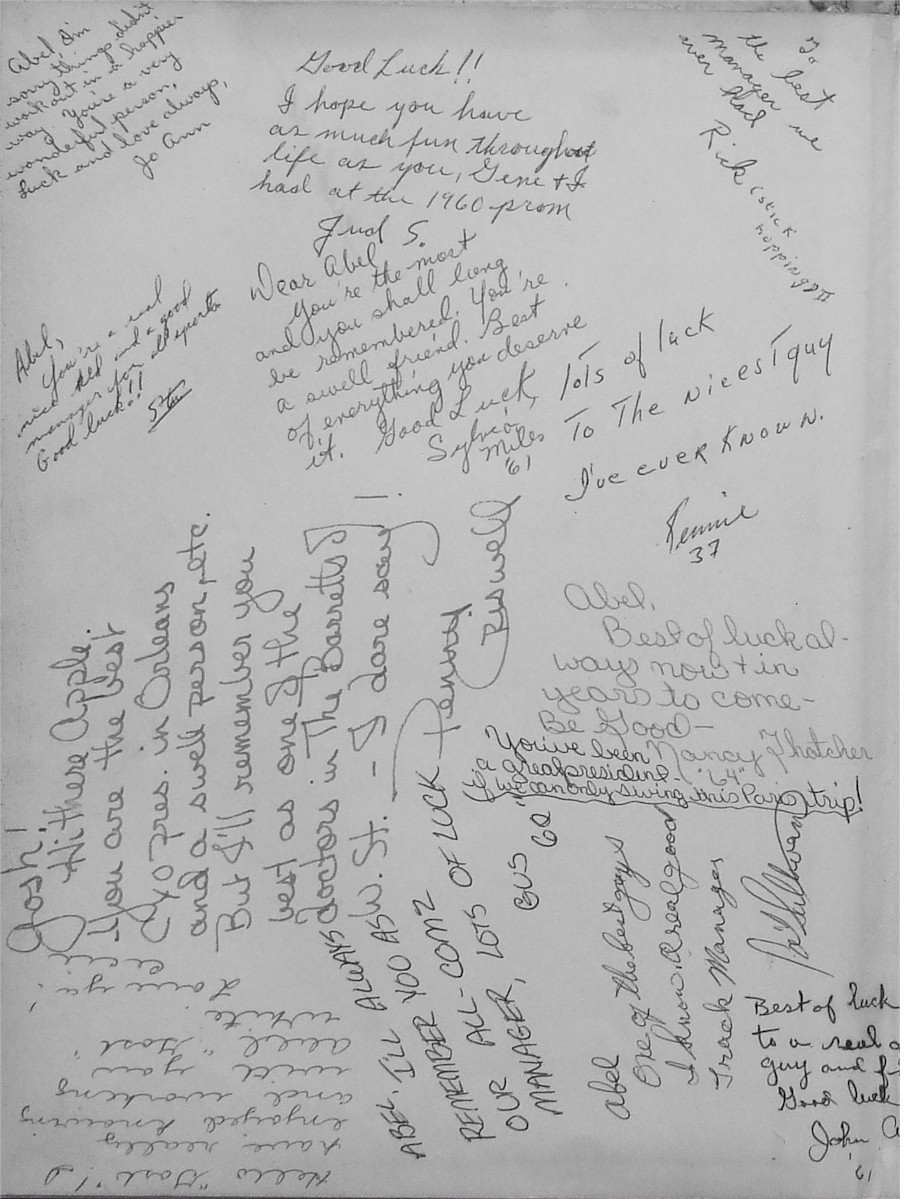 Abel, I'm
sorry things didn't
work out in a happier
way. You're a very
wonderful person,
Luck and love always,
Jo Ann
Good Luck!!
I hope you have
as much fun throughout
life as you, Gene + I
had at the 1960 prom
Jud S.
To
the best
manager we
ever had
Rick (stick
hopping)
Abel,
You're a real
nice kid and a good
manager for all sports
Good luck!!
Stan
Dear Abel
You're the most
and you shall long
be remembered. You're
a swell friend. Best
of everything you deserve
it. Good Luck,
Sylvia
Miles
'61
lots of luck
To The nicest guy
I've ever known.
Pennie
37
Gosh!
Hi there Apple.
You are the best
CYO Pres. in Orleans
and a swell person, etc.
But I'll remember you
best as one of the
doctors in "The Barretts of
W. St." - I dare say!
Penny
Biswell
Abel,
Best of luck al-
ways now + in
years to come-
Be Good-
Nancy Thatcher
"64"
You've been
a great president-
(If we can only swing this Paris trip!
Abel
One of the best guys
I know. A real good
Track Manager
ABEL, I'LL ALWAYS
REMEMBER YOU AS
OUR ALL-COM?
MANAGER, LOTS OF LUCK
GUS
60
Hello "Gosh"!
have really
enjoyed knowing
and working
with you
all "Gosh"
white
Love ya!
Best of luck
to a real
guy and
Good luck
John
'61